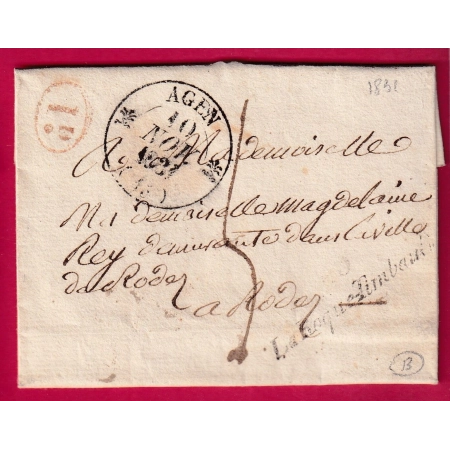 1831
AGEN
10
NOV
1831
(45)
A Mademoiselle
Mademoiselle Magdelaine
Rey demeurante dans la ville
de Rodez
a Rodez
5
La Roque Timbaut
B